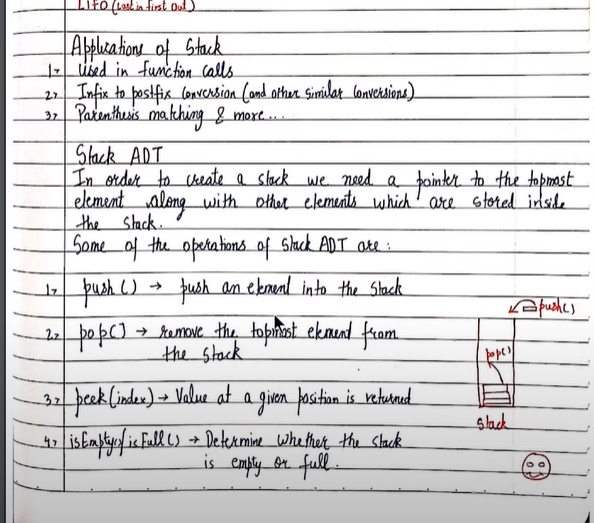 LIFO (Last in first Out)
Applications of Stack
1→ Used in function calls
2→ Infix to postfix Conversion (and other similar Conversions)
3→ Parenthesis matching & more...
Stack ADT
In order to create a stack we need a pointer to the topmost
element along with other elements which are stored inside
the stack.
Some of the operations of Stack ADT are :
1→ push() → push an element into the stack
2→ pop() → remove the topmost element from
the stack
3→ peek(index) → Value at a given position is returned
4→ isEmpty()/isFull() → Determine whether the stack
is empty or full.
push()
pop()
stack